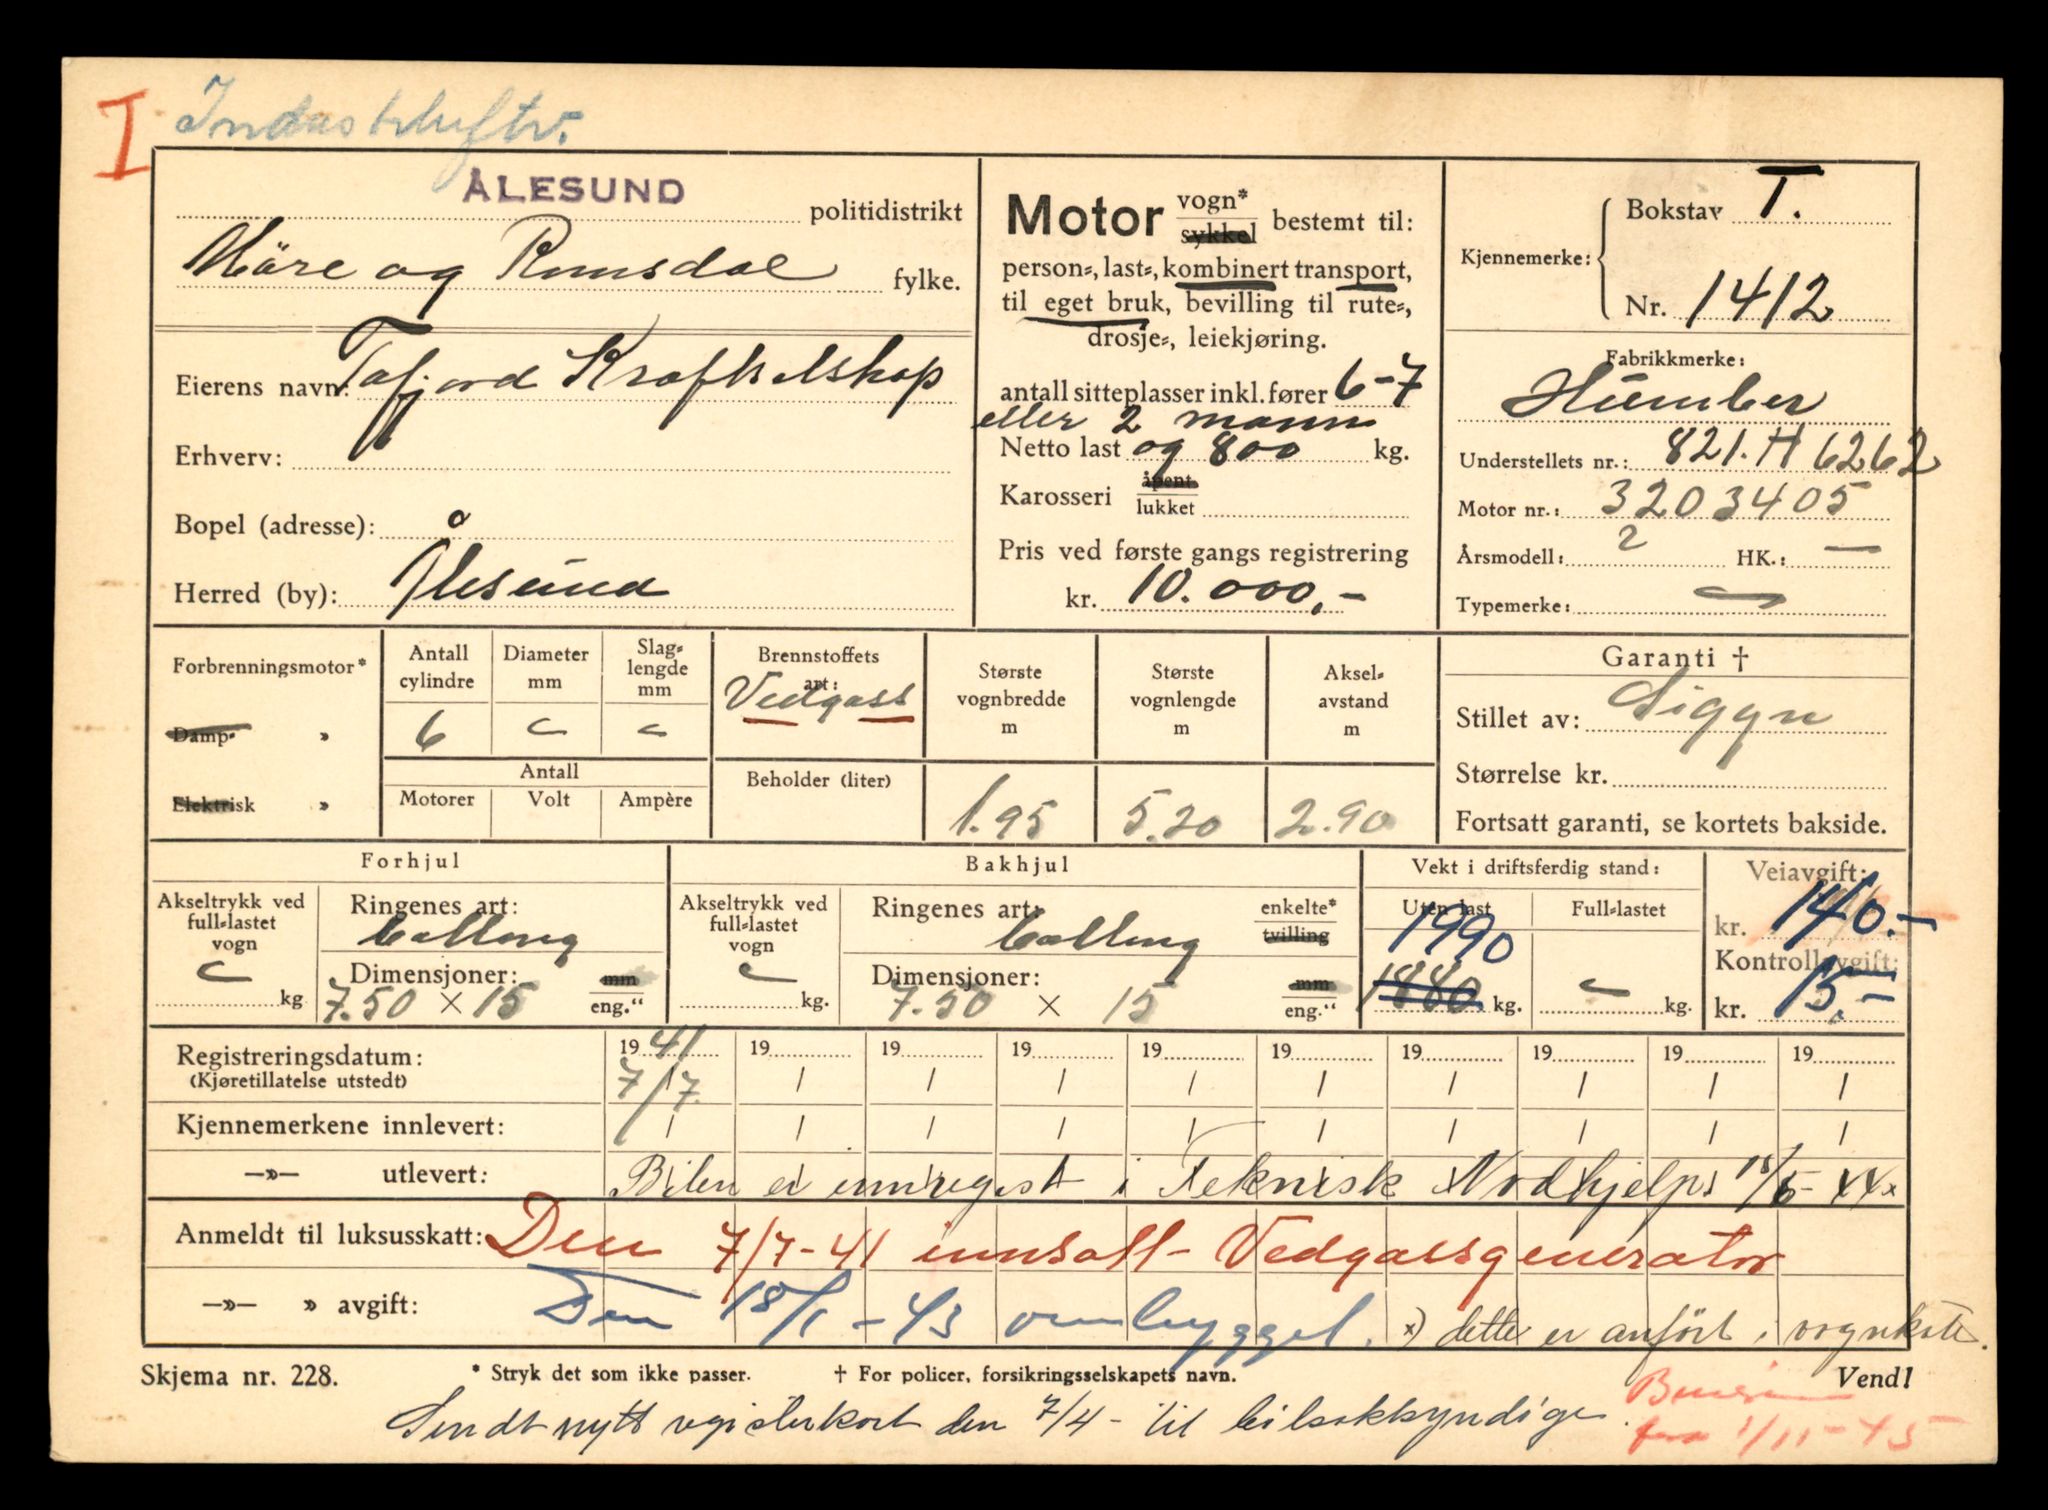 I Industriluftv.
ÅLESUND politidistrikt
Möre og Romsdal fylke.
Eierens navn: Tafjord Kraftselskap
Erhverv:
Bopel (adresse):
Herred (by): Ålesund
Motor vogn* sykkel bestemt til:
person-, last-, kombinert transport,
til eget bruk, bevilling til rute-,
drosje-, leiekjøring.
antall sitteplasser inkl. fører 6-7
eller 2 mann
Netto last og 800 kg.
Karosseri åpent lukket
Pris ved første gangs registrering
kr. 10.000,-
Kjennemerke: Bokstav T.
Nr. 1412
Fabrikkmerke:
Humber
Understellets nr.: 821.H 6262
Motor nr.: 3203405
Årsmodell: ? HK.: —
Typemerke: —
Forbrenningsmotor*
Damp- »
Elektrisk »
Antall cylindre
6
Diameter mm
Slag-lengde mm
Antall
Motorer Volt Ampère
Brennstoffets art:
Vedgass
Beholder (liter)
Største vognbredde m
1.95
Største vognlengde m
5.20
Aksel-avstand m
2.90
Garanti †
Stillet av: Sigyn
Størrelse kr.
Fortsatt garanti, se kortets bakside.
Forhjul
Akseltrykk ved full-lastet vogn
kg
Ringenes art:
Ballong
Dimensjoner: mm
7.50 × 15 eng."
Bakhjul
Akseltrykk ved full-lastet vogn
kg.
Ringenes art: enkelte* tvilling
Ballong
Dimensjoner: mm
7.50 × 15 eng."
Vekt i driftsferdig stand:
Uten last Full-lastet
1990
1880 kg. kg.
Veiavgift:
kr. 140.-
Kontrollavgift:
kr. 15,-
Registreringsdatum: 1941 19 19 19 19 19 19 19 19 19
(Kjøretillatelse utstedt) 7/7 / / / / / / / / /
Kjennemerkene innlevert: / / / / / / / / / /
—»— utlevert: Bilen er innregist. i Teknisk Nødhjelp 15/5-44 x
Anmeldt til luksusskatt: Den 7/7-41 innsatt Vedgassgenerator
—»— » avgift: Den 18/1-43 ombygget. x) dette er anfört i vognkort.
Skjema nr. 228. * Stryk det som ikke passer. † For policer, forsikringsselskapets navn. Vend!
Sendt nytt registerkort den 7/4 - til bilsakkyndige.
Bensin
fra 1/11-45